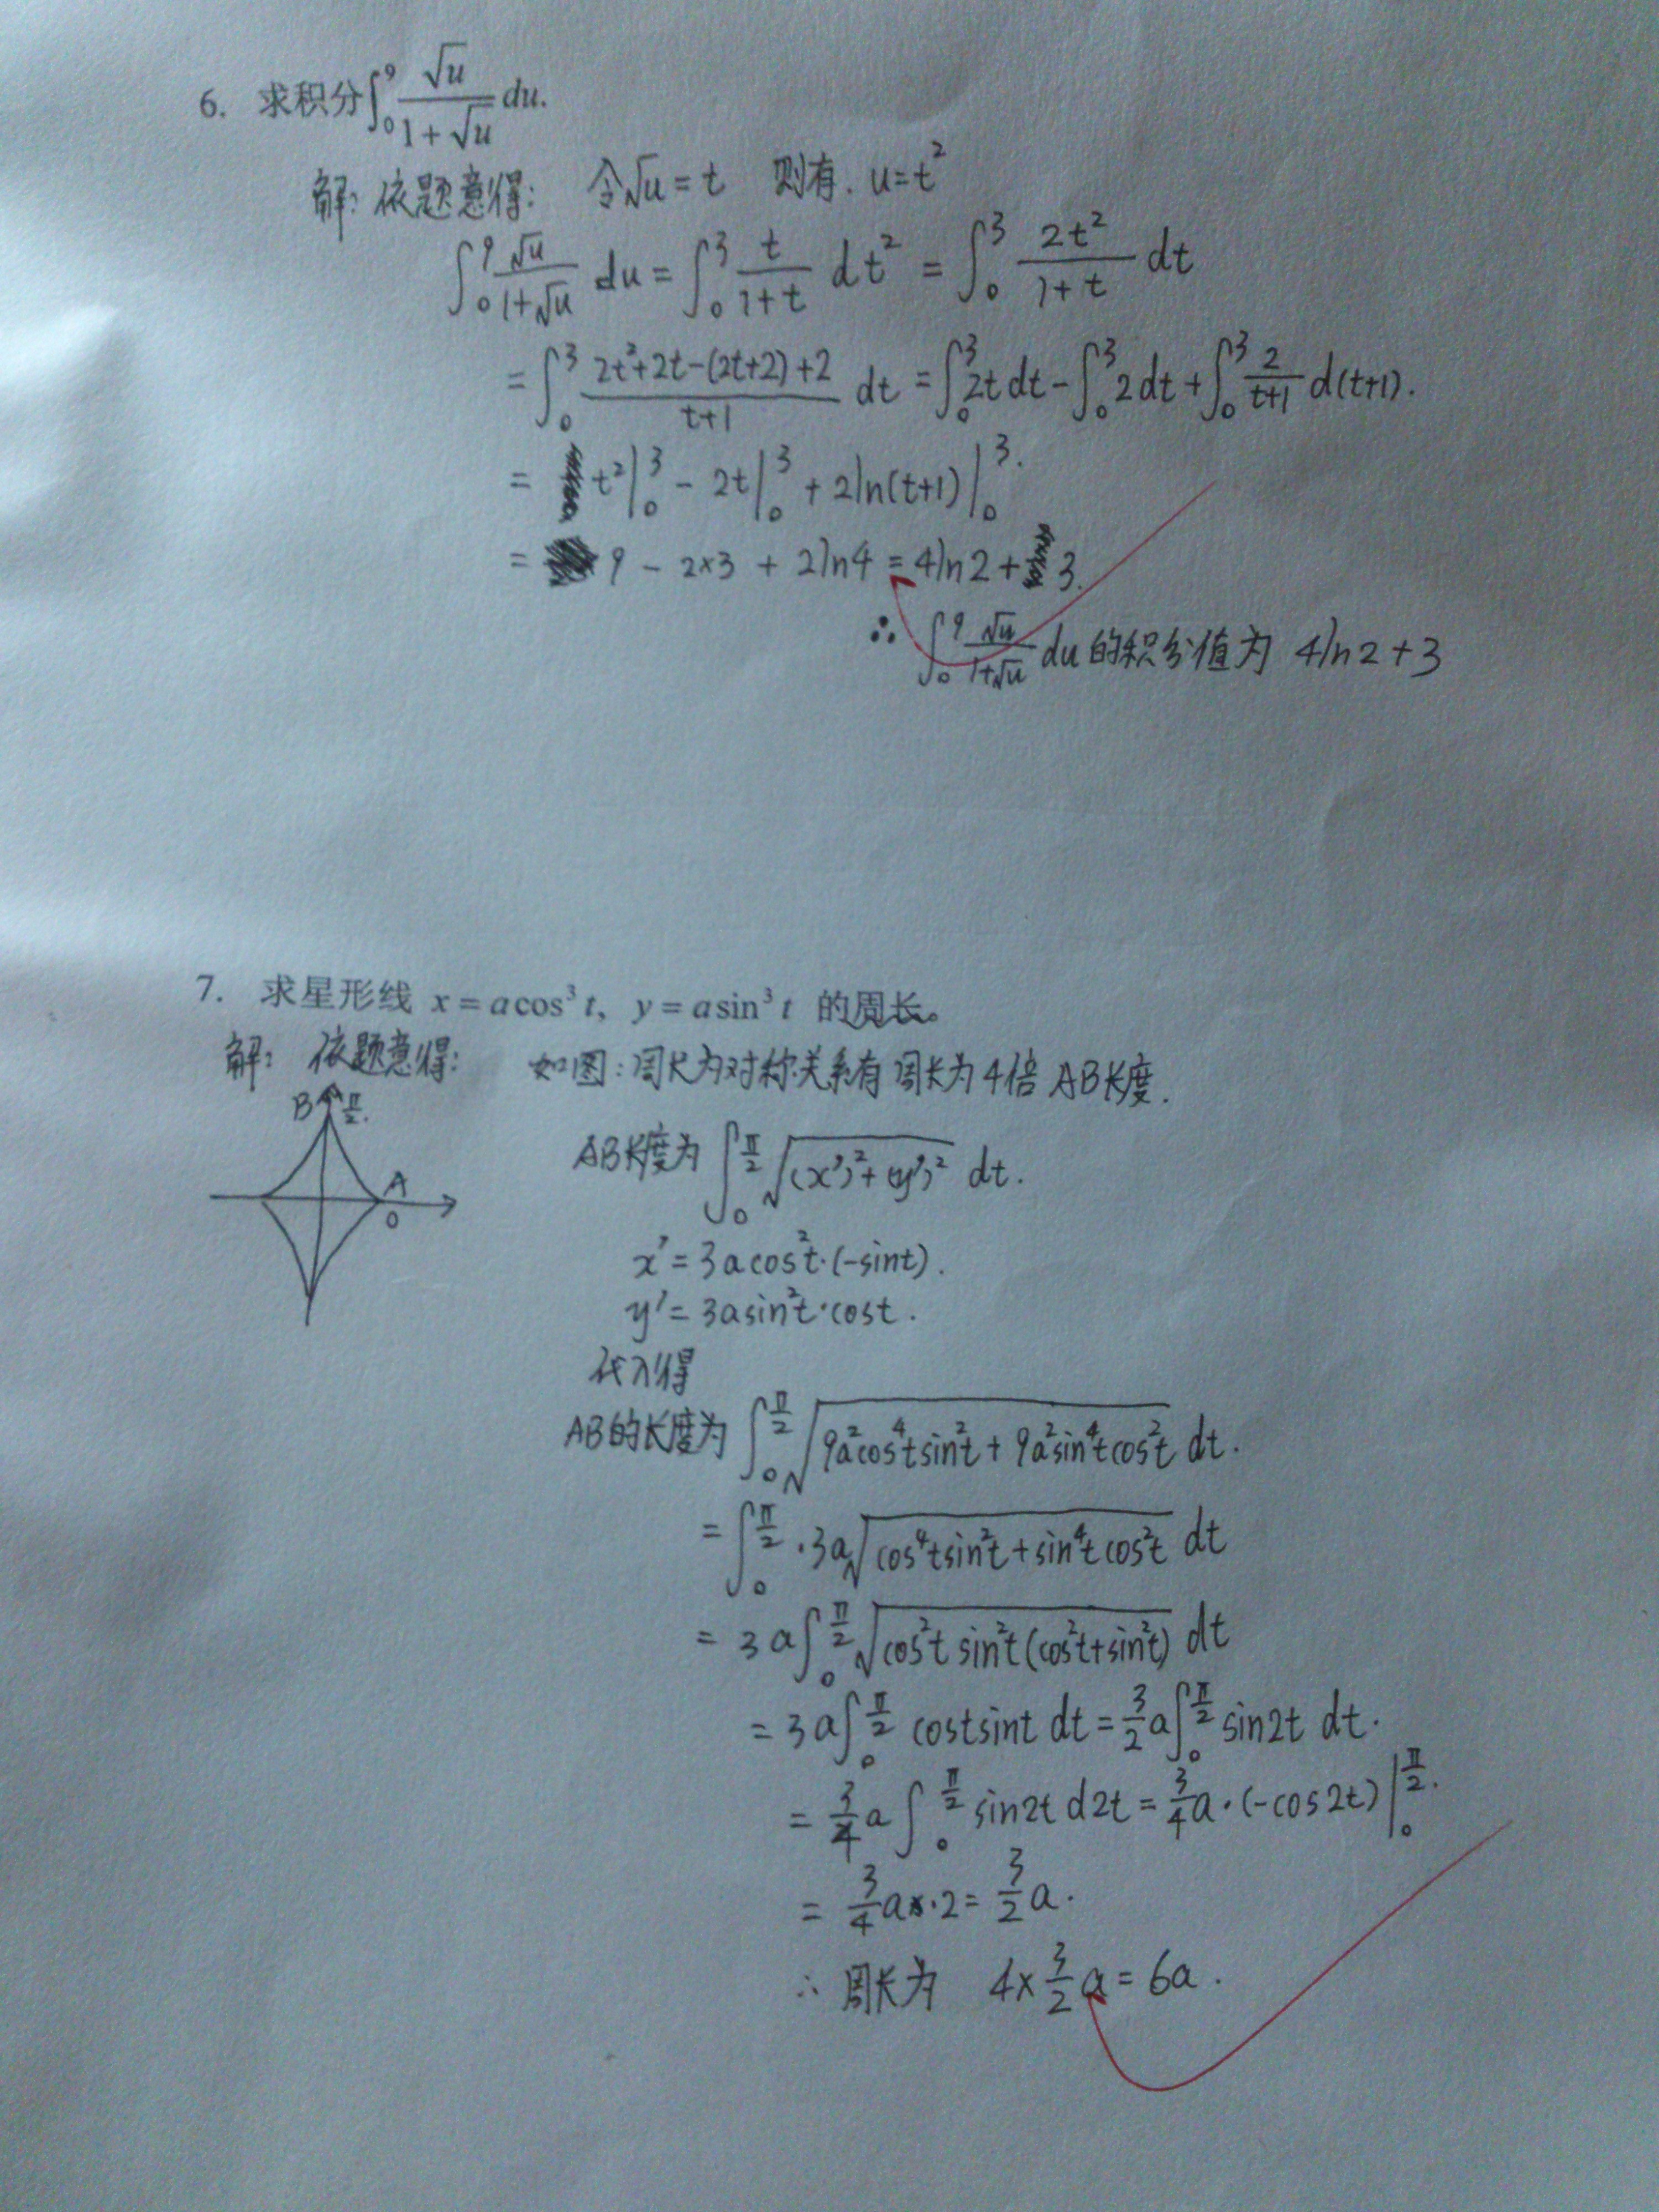 6. 求积分∫₀⁹ √u/(1+√u) du.
解: 依题意得: 令√u = t 则有. u=t²
∫₀⁹ √u/(1+√u) du = ∫₀³ t/(1+t) dt² = ∫₀³ 2t²/(1+t) dt
= ∫₀³ (2t²+2t-(2t+2)+2)/(t+1) dt = ∫₀³ 2t dt - ∫₀³ 2 dt + ∫₀³ 2/(t+1) d(t+1).
= t²|₀³ - 2t|₀³ + 2ln(t+1)|₀³.
= 9 - 2×3 + 2ln4 = 4ln2 + 3.
∴ ∫₀⁹ √u/(1+√u) du 的积分值为 4ln2+3
7. 求星形线 x = a cos³ t, y = a sin³ t 的周长。
解: 依题意得: 如图: 周长为对称关系有 周长为4倍 AB长度.
B π/2.
A
0
AB长度为 ∫₀^(π/2) √((x')²+(y')²) dt.
x' = 3a cos²t·(-sint).
y' = 3a sin²t·cost.
代入得
AB的长度为 ∫₀^(π/2) √(9a²cos⁴t sin²t + 9a²sin⁴t cos²t) dt.
= ∫₀^(π/2) ·3a√(cos⁴t sin²t + sin⁴t cos²t) dt
= 3a∫₀^(π/2) √(cos²t sin²t (cos²t+sin²t)) dt
= 3a∫₀^(π/2) cost sint dt = 3/2 a∫₀^(π/2) sin2t dt.
= 3/4 a∫₀^(π/2) sin2t d2t = 3/4 a·(-cos2t)|₀^(π/2).
= 3/4 a·2 = 3/2 a.
∴ 周长为 4×3/2 a = 6a.